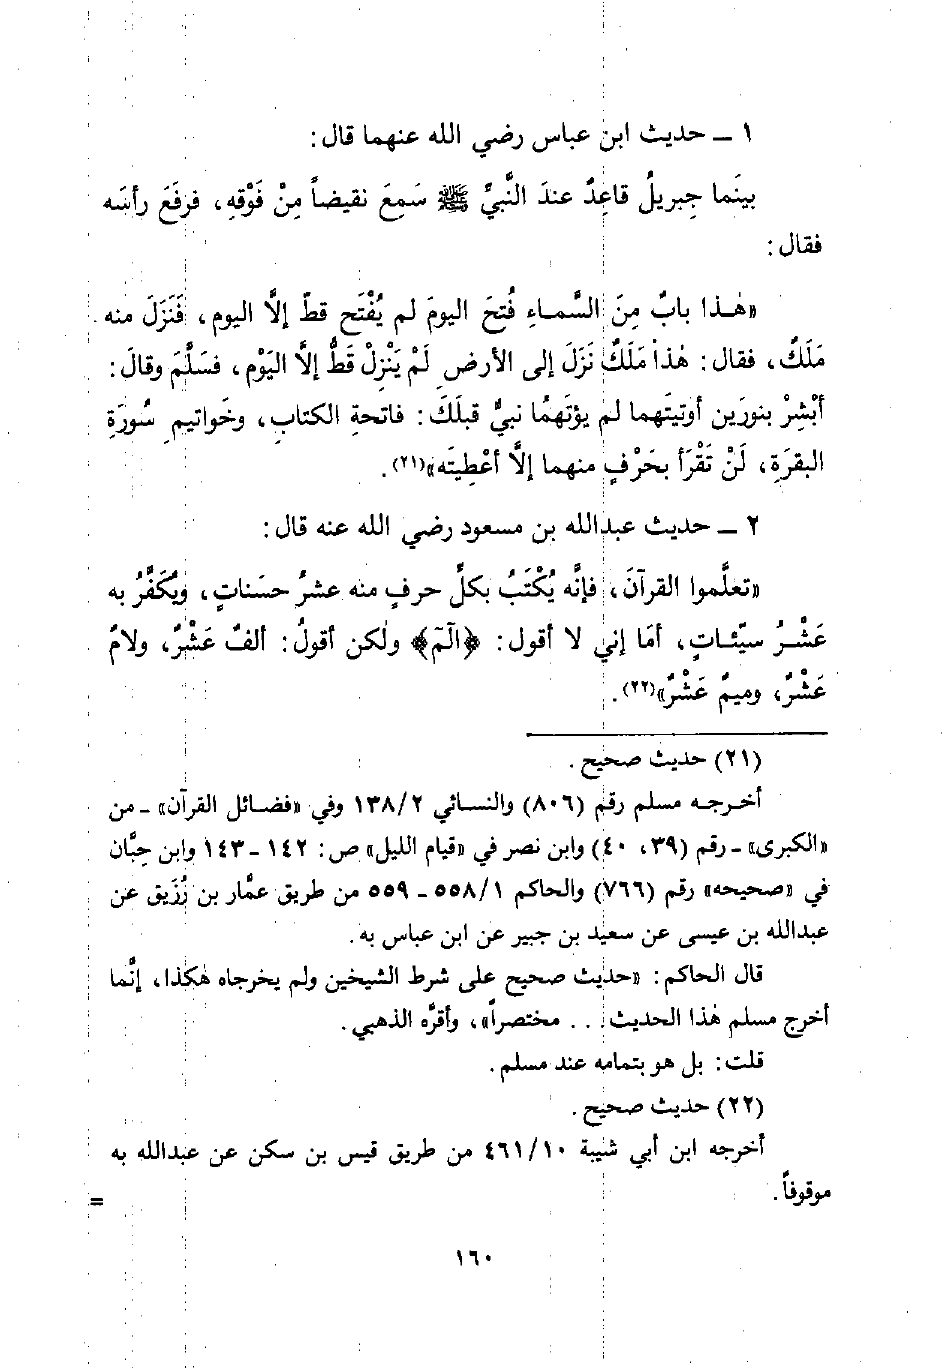 ١ ــ حديث ابن عباس رضي الله عنهما قال:
بينَما جِبريلُ قاعِدٌ عندَ النَّبيِّ ﷺ سَمِعَ نقيضاً مِنْ فَوْقِهِ، فرفَعَ رأسَه
فقال:
«هٰـذا بابٌ مِنَ السَّمـاءِ فُتحَ اليومَ لم يُفْتَح قطّ إلَّا اليوم، فَنَزَلَ منه
مَلَكٌ، فقال: هٰذا مَلَكٌ نَزَلَ إلى الأرضِ لَمْ يَنْزِلْ قَطُّ إلَّا اليَوْم، فسَلَّمَ وقالَ:
أبْشِرْ بنورَين أوتيتَهما لم يؤتَهمُا نبيٌّ قبلَكَ: فاتحةِ الكتابِ، وخَواتيمِ سُورَةِ
البقرَةِ، لَنْ تَقْرَأ بحَرْفٍ منهما إلَّا أعْطِيتَه»(٢١).
٢ ــ حديث عبدالله بن مسعود رضي الله عنه قال:
«تعلَّموا القرآنَ، فإنَّه يُكْتَبُ بكلِّ حرفٍ منه عشرُ حسَناتٍ، ويُكَفَّرُ به
عَشْـرُ سيّئـاتٍ، أمَا إني لا أقول: ﴿الٓمٓ﴾ ولٰكن أقولُ: ألفٌ عَشْرٌ، ولامٌ
عَشْرٌ، وميمٌ عَشْرٌ»(٢٢).
(٢١) حديث صحيح.
أخـرجـه مسلم رقم (٨٠٦) والنسائي ١٣٨/٢ وفي «فضـائل القرآن» ـ من
«الكبرى» ـ رقم (٣٩، ٤٠) وابن نصر في «قيام الليل» ص: ١٤٢ ـ ١٤٣ وابن حِبَّان
في «صحيحه» رقم (٧٦٦) والحاكم ٥٥٨/١ ـ ٥٥٩ من طريق عمَّار بن رُزَيق عن
عبدالله بن عيسى عن سعيد بن جبير عن ابن عباس به.
قال الحاكم: «حديث صحيح على شرط الشيخين ولم يخرجاه هٰكذا، إنَّما
أخرج مسلم هٰذا الحديث ... مختصراً»، وأقرَّه الذهبي.
قلت: بل هو بتمامه عند مسلم.
(٢٢) حديث صحيح.
أخرجه ابن أبي شيبة ٤٦١/١٠ من طريق قيس بن سكن عن عبدالله به
موقوفاً.
=
١٦٠